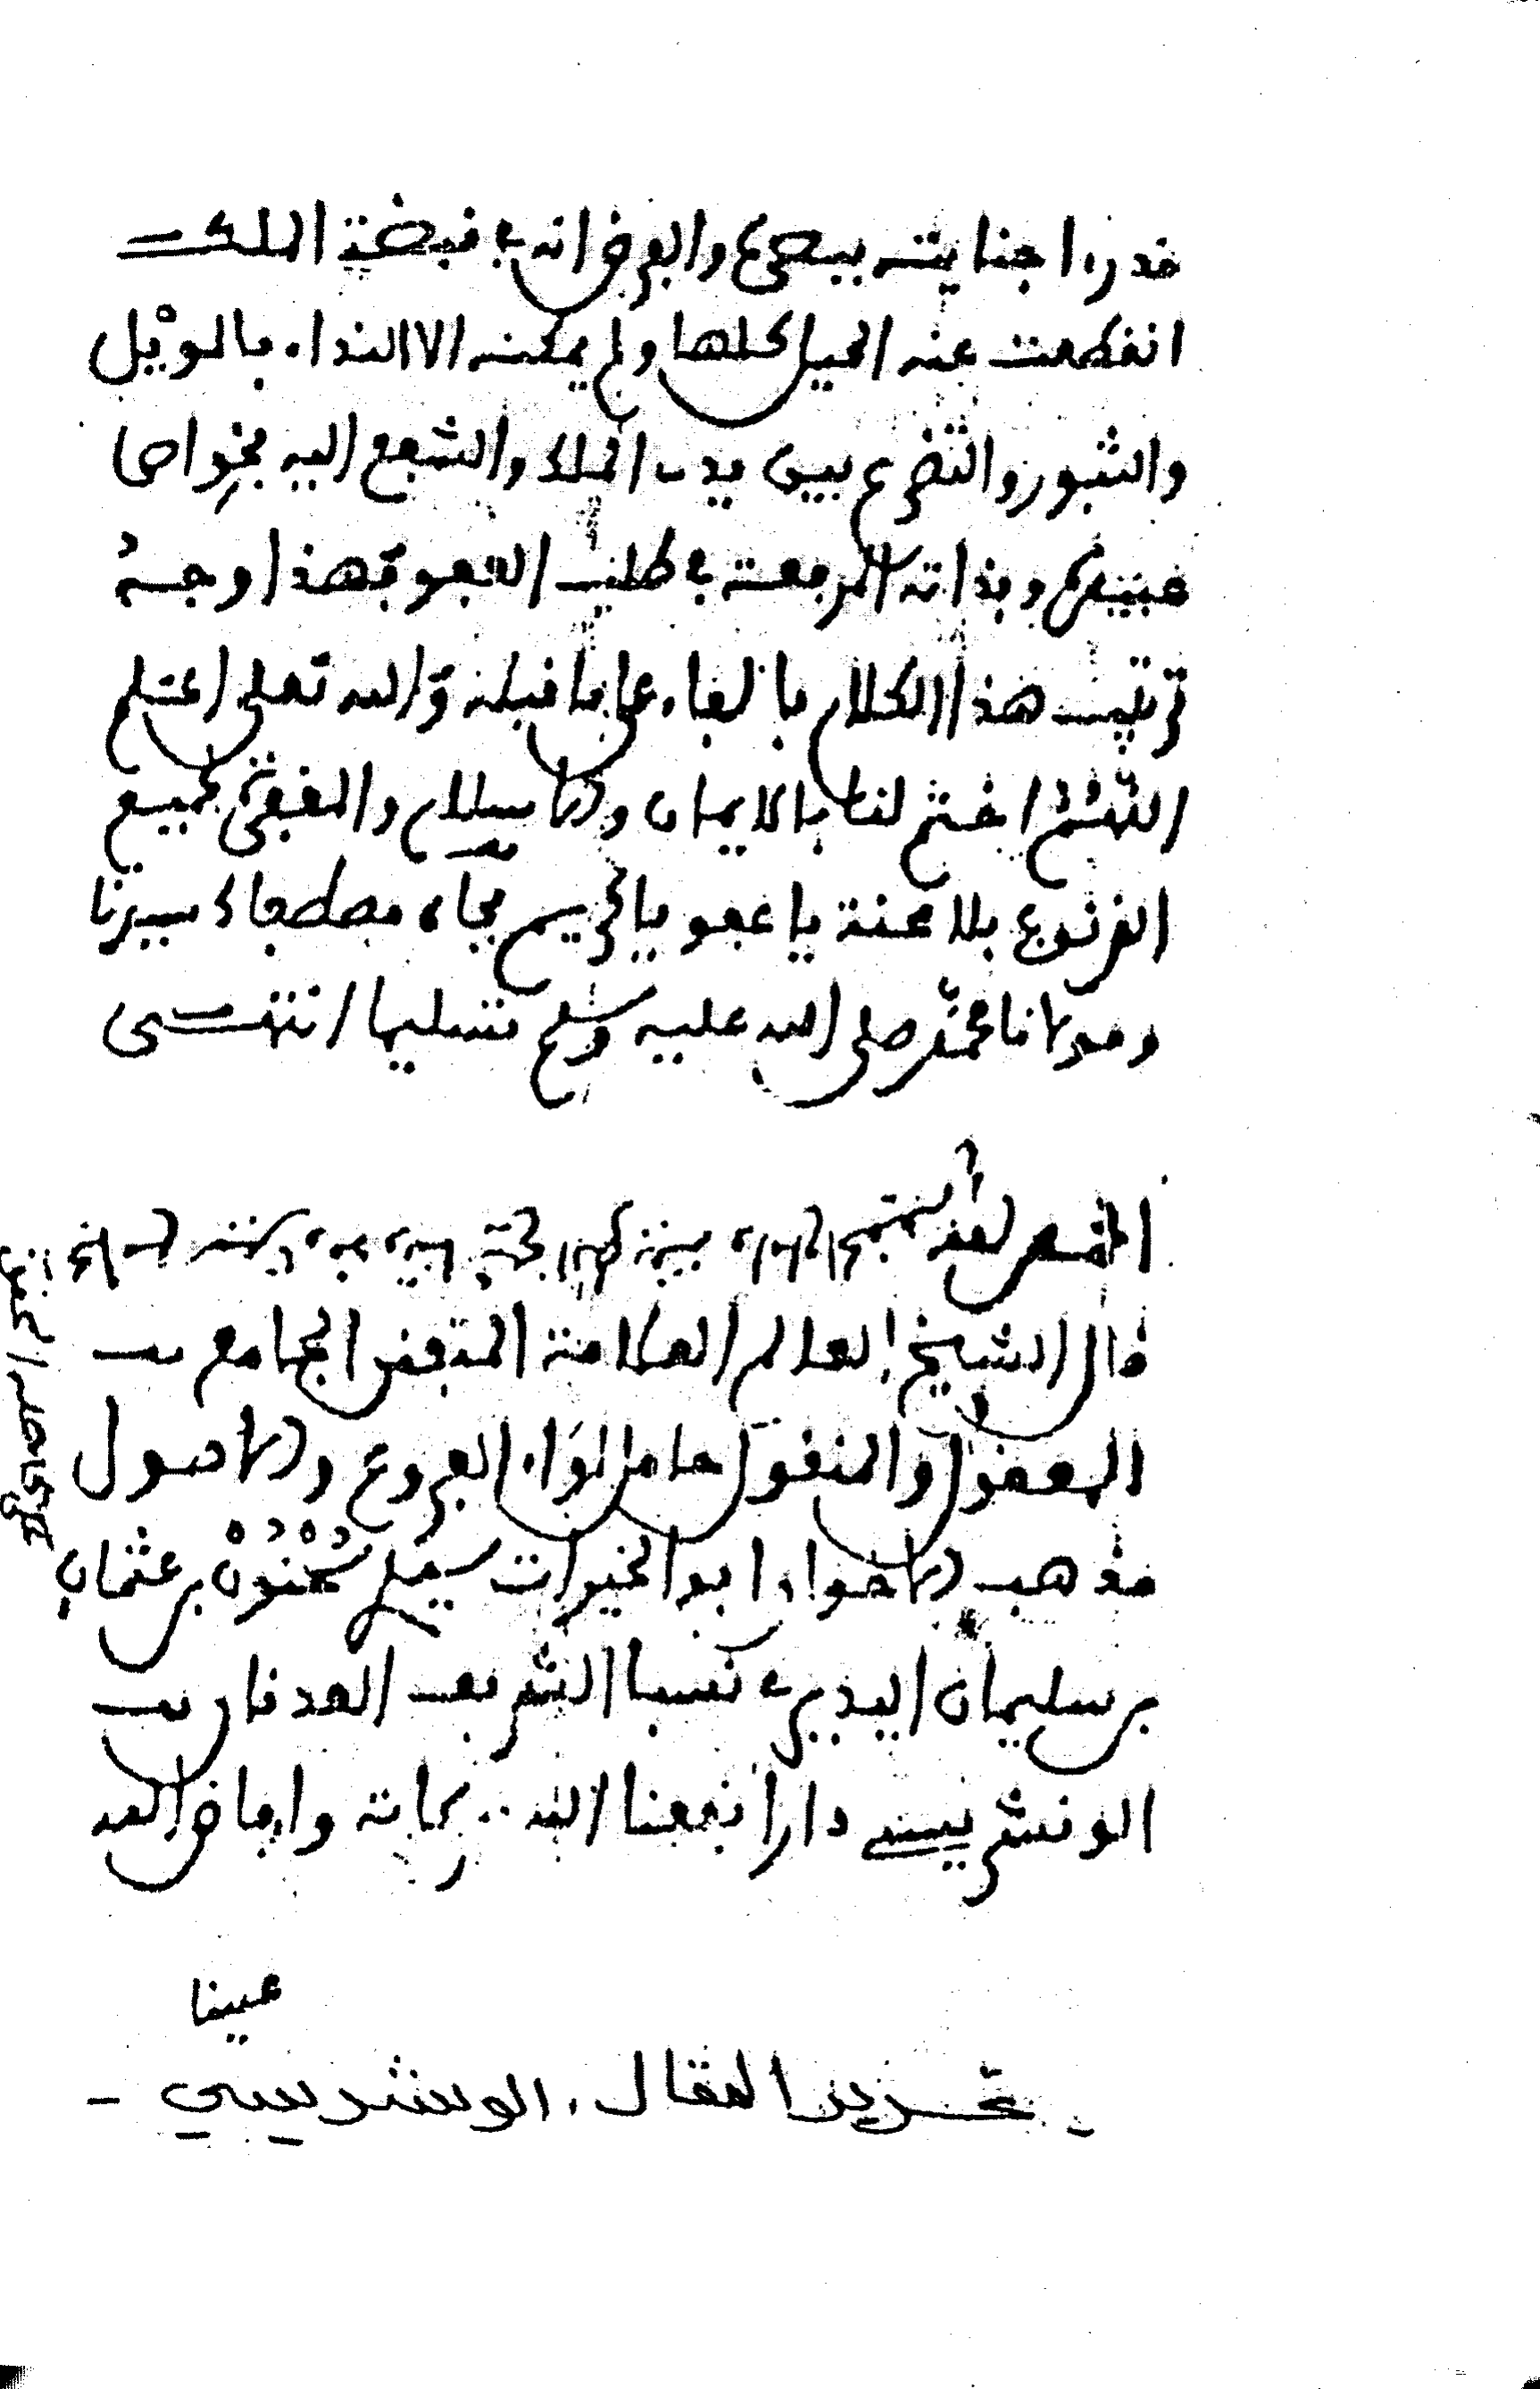 قدر اجنايته بيحى والفرض انه في قبضة الملك
انقطعت عنه الحيل كلها ولم يمكنه الا النداء بالويل
والثبور والتضرع بين يدي الملك والتشفع اليه بخواص
عبيده وبذاته المرفعة في طلب العفو فهذا وجه
ترتيب هذا الكلام بالفاء على ما قبله والله تعلى اعلم
اللهم اختم لنا بالايمان والاسلام والمغفرة لجميع
الذنوب بلا محنة يا عفو يا كريم بجاه مصطفاك سيدنا
ومولانا محمد صلى الله عليه وسلم تسليما انتهى
الحمد لله
قال الشيخ العالم العلامة المتفنن الجامع بين
المعقول والمنقول حامل لواء الفروع والاصول
مذهب الاخواء ابو الخيرات سيدي سُحْنُونْ بن عثمان
بن سليمان اليديري نسبا الشريف العدناني
الونشريسي دارا نفعنا الله ببركاته وافاض الله
عينا
ـ تحرير المقال، الونشريسي ـ